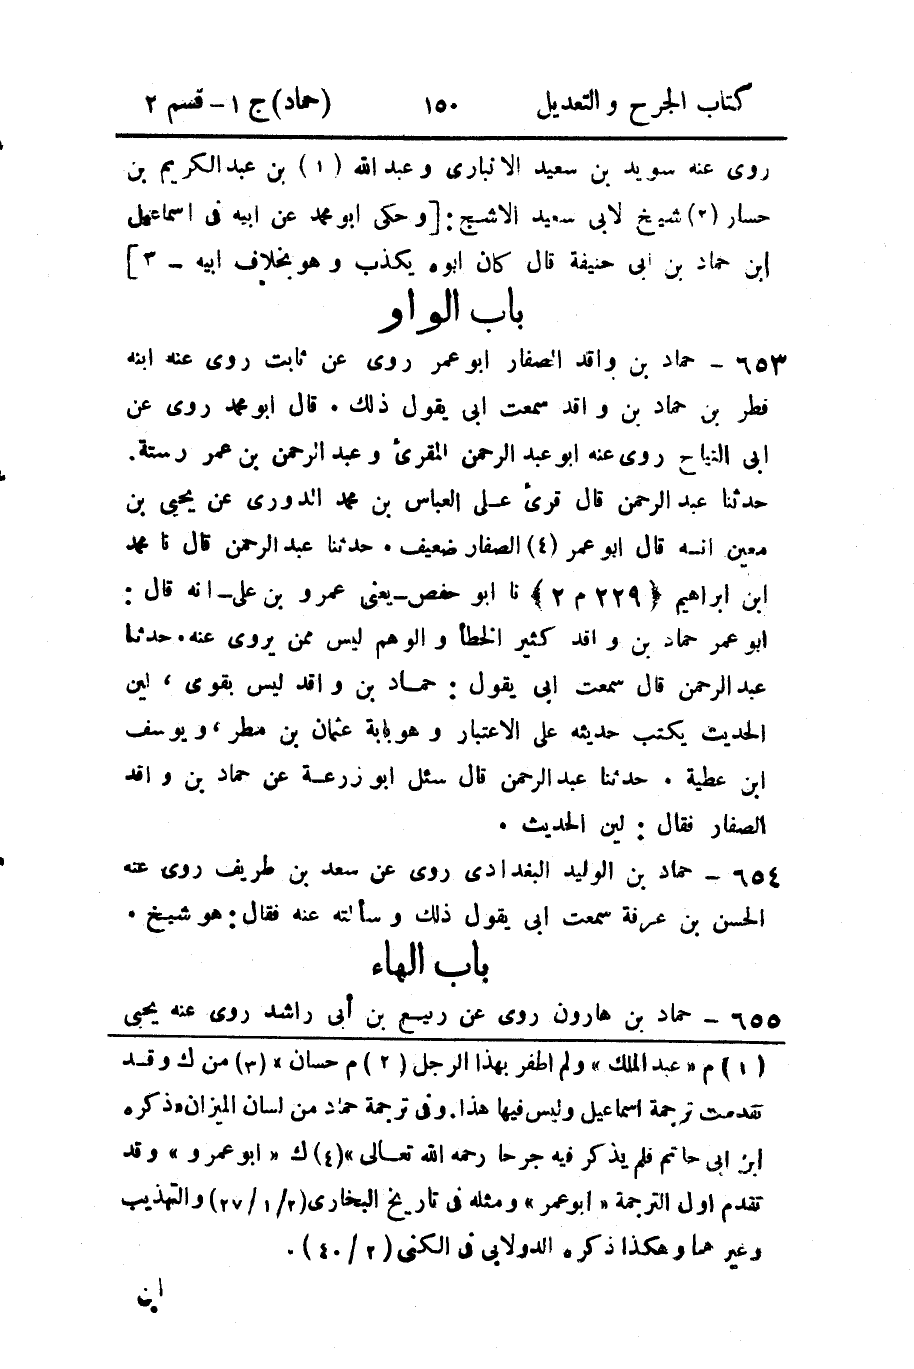 كتاب الجرح و التعديل ١٥٠ (حماد) ج ١ - قسم ٢
روى عنه سويد بن سعيد الانبارى و عبد الله (١) بن عبد الكريم بن
حسار (٢) شيخ لابى سعيد الاشج : [ و حكى ابو محمد عن ابيه فى اسماعيل
ابن حماد بن ابى حنيفة قال كان ابوه يكذب و هو بخلاف ابيه - ٣ ]
باب الواو
٦٥٣ - حماد بن واقد الصفار ابو عمر روى عن ثابت روى عنه ابنه
فطر بن حماد بن واقد سمعت ابى يقول ذلك . قال ابو محمد روى عن
ابى التياح روى عنه ابو عبد الرحمن المقرئ و عبد الرحمن بن عمر رستة .
حدثنا عبد الرحمن قال قرئ على العباس بن محمد الدورى عن يحيى بن
معين انه قال ابو عمر (٤) الصفار ضعيف . حدثنا عبد الرحمن قال نا محمد
ابن ابراهيم ﴿ ٢٢٩ م ٢ ﴾ نا ابو حفص - يعنى عمرو بن على - انه قال :
ابو عمر حماد بن واقد كثير الخطأ و الوهم ليس ممن يروى عنه . حدثنا
عبد الرحمن قال سمعت ابى يقول : حماد بن واقد ليس بقوى ، لين
الحديث يكتب حديثه على الاعتبار و هو بابة عثمان بن مطر ، و يوسف
ابن عطية . حدثنا عبد الرحمن قال سئل ابو زرعة عن حماد بن واقد
الصفار فقال : لين الحديث .
٦٥٤ - حماد بن الوليد البغدادى روى عن سعد بن طريف روى عنه
الحسن بن عرفة سمعت ابى يقول ذلك و سألته عنه فقال : هو شيخ .
باب الهاء
٦٥٥ - حماد بن هارون روى عن ربيع بن أبى راشد روى عنه يحيى
(١) م « عبد الملك » ولم اظفر بهذا الرجل (٢) م حسان » (٣) من ك وقد
تقدمت ترجمة اسماعيل وليس فيها هذا . وفى ترجمة حماد من لسان الميزان « ذكره
ابن ابى حاتم فلم يذكر فيه جرحا رحمه الله تعالى » (٤) ك « ابو عمرو » وقد
تقدم اول الترجمة « ابو عمر » ومثله فى تاريخ البخارى (٢/ ١/ ٢٧) والتهذيب
وغيرهما وهكذا ذكره الدولابى فى الكنى (٢/ ٤٠) .
ابن